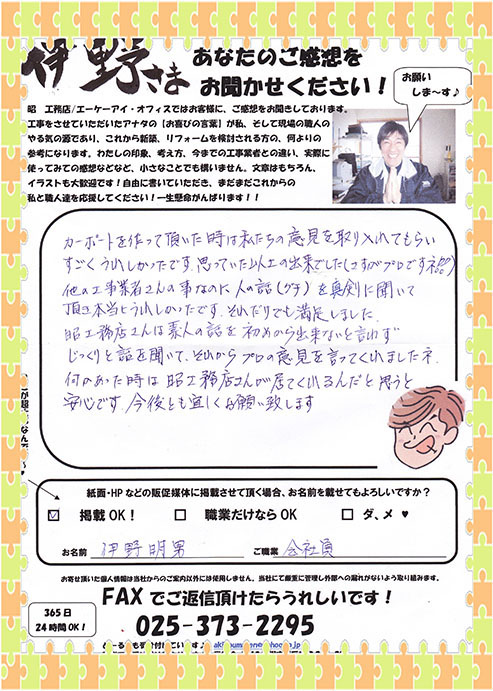 伊野さま
あなたのご感想を
お聞かせください!
お願い
しま～す♪
昭　工務店/エーケーアイ・オフィスではお客様に、ご感想をお聞きしております。
工事をさせていただいたアナタの【お喜びの言葉】が私、そして現場の職人の
やる気の源であり、これから新築、リフォームを検討される方の、何よりの
参考になります。わたしの印象、考え方、今までの工事業者との違い、実際に
使ってみての感想などなど、小さなことでも構いません。文章はもちろん、
イラストも大歓迎です!自由に書いていただき、まだまだこれからの
私と職人達を応援してください!一生懸命がんばります!!
カーポートを作って頂いた時は私たちの意見を取り入れてもらい
すごくうれしかったです。思っていた以上の出来でした(さすがプロですネ
他の工事業者さんの事なのに人の話(グチ)を真剣に聞いて
頂き本当にうれしかったです。それだけでも満足しました。
昭工務店さんは素人の話を初めから出来ないと言わず
じっくりと話を聞いて、それからプロの意見を言ってくれましたネ。
何かあった時は昭工務店さんが居てくれるんだと思うと
安心です。今後とも宜しくお願い致します
紙面・HPなどの販促媒体に掲載させて頂く場合、お名前を載せてもよろしいですか?
☑ 掲載OK! □ 職業だけならOK □ ダ、メ ♥
お名前 伊野明男 ご職業 会社員
お寄せ頂いた個人情報は当社からのご案内以外には使用しません。当社にて厳重に管理し外部への漏れがないよう取り組みます。
FAXでご返信頂けたらうれしいです!
365日
24時間OK!
025-373-2295